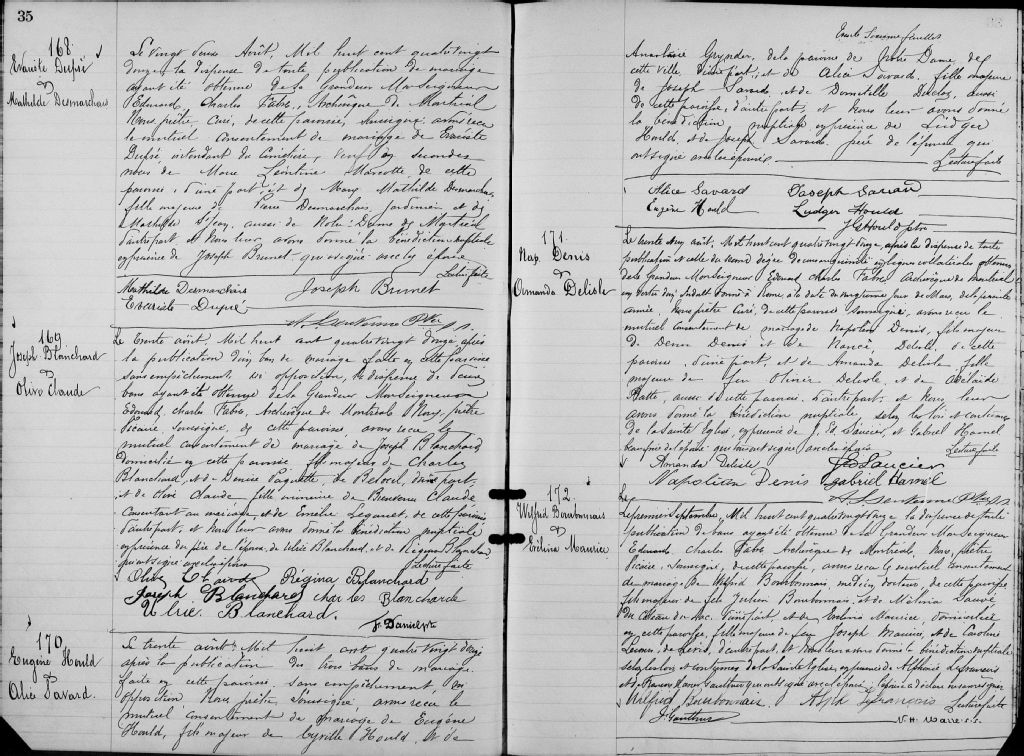 35
168
Evariste Dupré
&
Mathilde Desmarchais
Le vingt deux Août, Mil huit cent quatre vingt
douze, la dispense de toute publication de mariage
ayant été obtenue de Sa Grandeur Monseigneur
Edouard Charles Fabre, Archevêque de Montréal
Nous prêtre, Curé, de cette paroisse, soussigné, avons reçu
le mutuel consentement de mariage de Evariste
Dupré, intendant du cimetière, veuf en secondes
noces de Marie Léontine Marcotte de cette
paroisse, d'une part, et de Mary Mathilde Desmarchais
fille majeure de Pierre Desmarchais, jardinier et de
Mathilde St Jean, aussi de Notre Dame de Montréal
d'autre part et nous leur avons donné la bénédiction nuptiale
en présence de Joseph Brunet qui a signé avec les époux
Lecture faite
Mathilde Desmarchais Joseph Brunet
Evariste Dupré
169
Joseph Blanchard
&
Olive Claude
Le trente août, Mil huit cent quatre vingt douze, après
la publication d'un ban de mariage faite en cette paroisse
sans empêchement, ni opposition, la dispense de deux
bans ayant été obtenue de Sa Grandeur Monseigneur
Edouard Charles Fabre, Archevêque de Montréal Nous, prêtre
Vicaire, soussigné, de cette paroisse avons reçu le
mutuel consentement de mariage de Joseph Blanchard,
domicilié en cette paroisse, fils majeur de Charles
Blanchard et de Denise Paquette, de Beloeil, d'une part,
et de Olive Claude fille mineure de Claude
consentant au mariage et de Emelie Leganet, de cette paroisse
d'autre part, et nous leur avons donné la bénédiction nuptiale
en présence du père de l'époux, de Ulric Blanchard, et de Régina Blanchard
qui ont signé avec les époux Lecture faite
Olive Claude Régina Blanchard
Joseph Blanchard Charles Blanchard
Ulric Blanchard.
F. Daniel ptr
170
Eugène Hould
&
Alice Savard.
Le trente août Mil huit cent quatre vingt douze
après la publication des trois bans de mariage
faite en cette paroisse, sans empêchement, ni
opposition Nous prêtre, soussigné, avons reçu le
mutuel consentement de mariage de Eugène
Hould, fils majeur de Cyrille Hould, et de
feuilles
Anastasie Grynder, de la paroisse de Notre Dame de
cette ville, d'une part, et de Alice Savard, fille majeure
de Joseph Savard et de Domitille Duclos, aussi
de cette paroisse, d'autre part, et nous leur avons donné
la bénédiction nuptiale en présence de Ludger
Hould, et de Joseph Savard père de l'épouse qui
ont signé avec les époux Lecture faite
Alice Savard Joseph Savard
Eugène Hould Ludger Hould
J G Hould ptre
171
Nap. Denis
&
Armanda Delisle
Le trente un août, Mil huit cent quatre vingt douze, après la dispense de toute
publication et celle du second degré de consanguinité en ligne collatérale obtenues
de Sa Grandeur Monseigneur Edouard Charles Fabre Archevêque de Montréal
en vertu d'un Indult donné à Rome, à la date du jour de Mars, de la présente
année, Nous prêtre Curé, de cette paroisse soussigné, avons reçu le
mutuel consentement de mariage de Napoléon Denis, fils majeur
de Denis Denis et de Nancé Delisle, de cette
paroisse d'une part, et de Amanda Delisle fille
majeure de feu Olivier Delisle, et de Adélaïde
Batte, aussi de cette paroisse, d'autre part, et nous leur
avons donné la bénédiction nuptiale, selon les lois et coutumes
de la Sainte Eglise, en présence de J. Et. Saucier, et Gabriel Hamel
qui ont signé avec les époux Lecture faite
Amanda Delisle J E Saucier
Napoléon Denis Gabriel Hamel
172
Wilfrid Bourbonnais
&
Evelina Maurice
Le premier septembre, Mil huit cent quatre vingt douze la dispense de toute
publication de bans ayant été obtenue de Sa Grandeur Monseigneur
Edouard Charles Fabre Archevêque de Montréal, Nous, prêtre
Vicaire, soussigné, de cette paroisse, avons reçu le mutuel consentement
de mariage de Wilfrid Bourbonnais, médecin, docteur, de cette paroisse
fils majeur de feu Julien Bourbonnais, et de Mélina Sauvé
du Coteau du Lac, d'une part, et de Evelina Maurice, domiciliée
en cette paroisse, fille majeure de feu Joseph Maurice, et de Caroline
Lecours de Lévis, d'autre part, et nous leur avons donné la bénédiction nuptiale
selon les lois et coutumes de la Sainte Eglise, en présence de Alphonse Lefrançois
et de Francis Xavier Gauthier qui ont signé avec l'époux, l'épouse a déclaré ne savoir signer
Wilfrid Bourbonnais. Alph Lefrançois Lecture faite
Gauthier
N. H. Marre p.s.s.